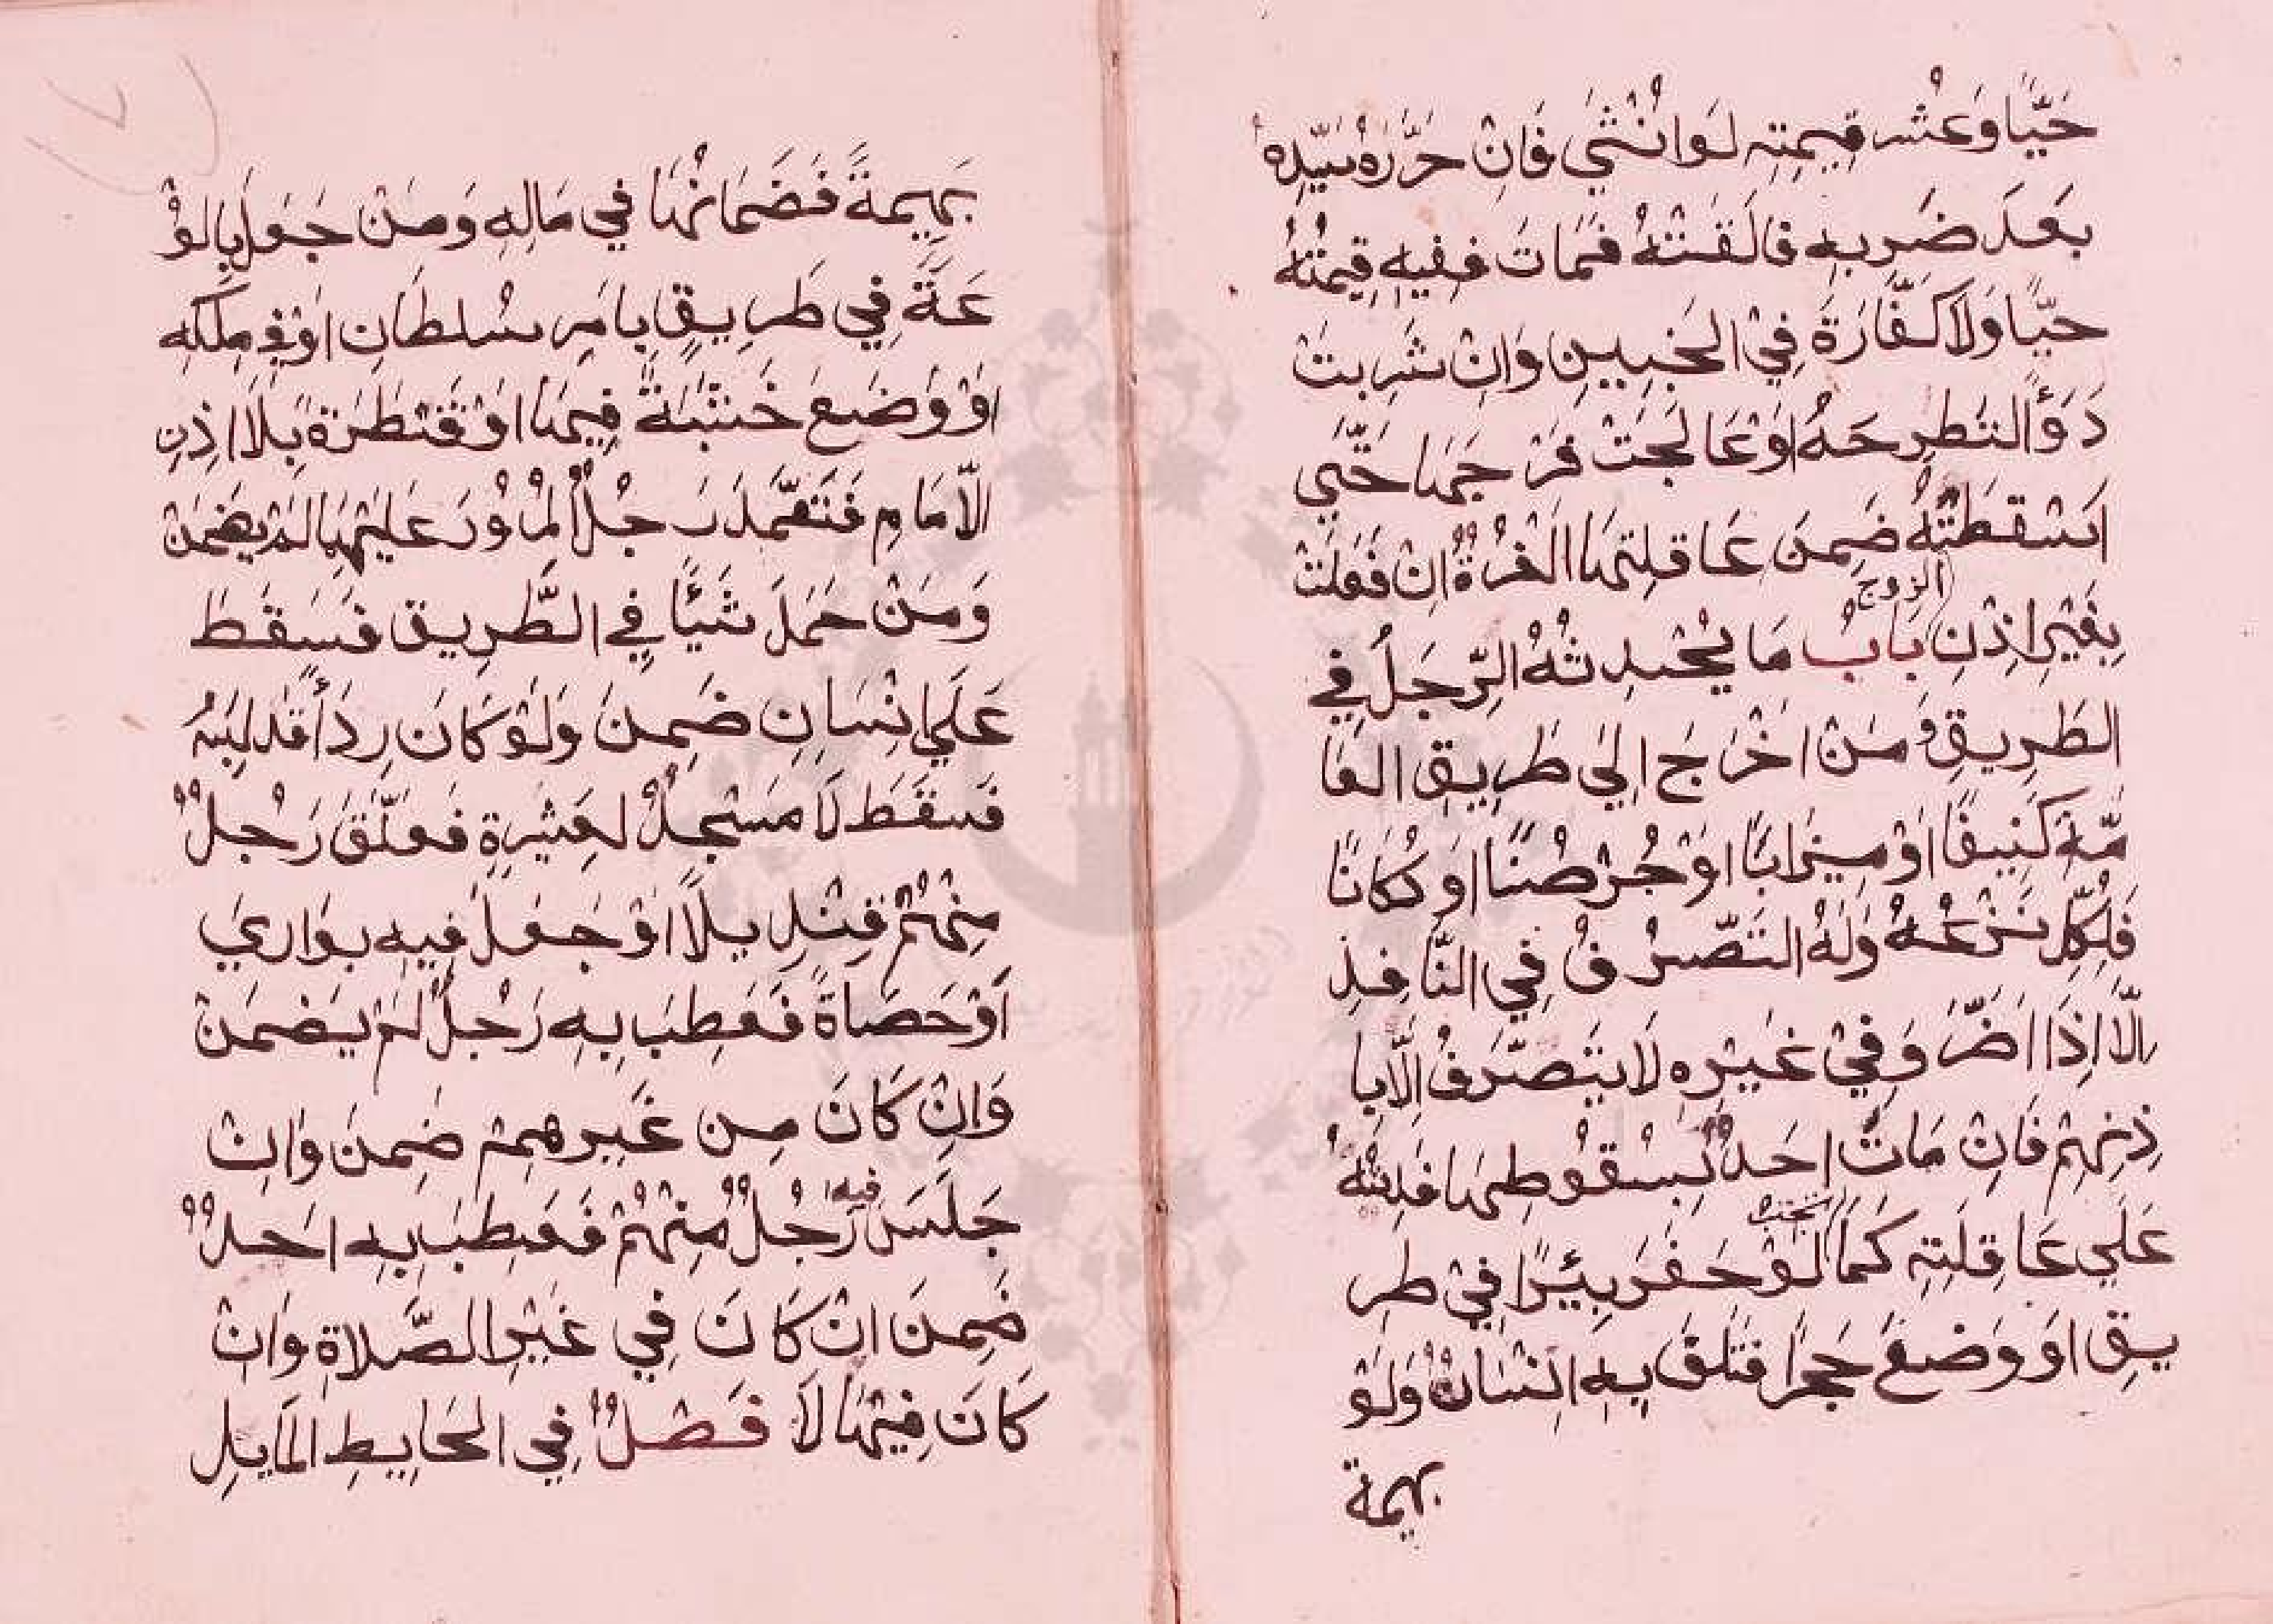 حَيًّا وَعُشْر قِيمِتِهِ لَوا نُنْثَي فَاِنْ حَرَّرَهُ سَيِّدِهُ
بَعَدَ ضَربِهِ فالَقَتْهُ فَمَاتَ فَفِيهِ قِيمَتُهُ
حيًّا وَلَا كَفَّارَةَ فِيْ الجَنِيينِ وَاِنْ شَرِبتْ
دَوَأً لتَطرِحَهُ اَوْعَا لَجَتْ فَرْجَهَا حَتَّي
اَسْقطَتْهُ ضَمِنَ عَاقلِتهَا الغُرةُ اِنْ فَعَلتْ
بِغَيْرِ اِذْنِ الزوج بَابُ مَا يُحْدِثُهُ الرَّجَلُ فِي
الطَرِيقِ وَمَنْ اَخْرَجَ اِلَي طَرِيقِ العَا
مَّةِ كَنِيفًا اَوْمِيزَابًا اوْجُرْصُنًا اَو دُكَانًا
فَلِكُلٍّ نَزْعُهُ وَلَهُ التَصَّرُفُ فِي النَّافِذِ
اِلَّا اِذَا اَضَرَّ وَفِيْ غَيْرِهِ لَا يَتَصَّرَفُ اِلَّا بِا
ذِنِهِمْ فَاِنْ مَاتَ اَحَدٌ بِسُقُوطِهَا فَدِيَتُهُ
عَلَي عَاقِلَتِهِ كَمَا لَوْحَفَرَ بِيْرًا فِيْ طرِ
يقِ اَو وَضعَ حَجرًا فتَلَفَ بِهِ اِنْسَانٌ وَلَوْ
بهيمة
بَهِيمَةً فَضَمَانُهَا فِي مَالِهِ وَمَنْ جَعَلَ بَالوْ
عَةً فِي طَرِيقٍ بِا مَرِ سُلطَانِ اوْفِي مِلكِهِ
اوْ وَضعَ خَشَبَةً فِيهَا اوْ قَنْطَرَةً بِلَا اِذِنِ
الاَّمَامِ فَتَعَمَّدَ رَجُلٌ المُرُورَ عَلَيْهَا لَمْ يضْمَنْ
وَمَنْ حَمَلَ شَيْأً فِي الطَّرِيقِ فسَقَطَ
عَلَي اِنْسَانِ ضَمِنَ وَلَوْكَانَ رِدَأً قَدلَبِسَهُ
فَسقَطَ لَا مَسْجِدٌ لعَشِيْرةٍ فَعَلَّقَ رَجُلٌ
مِنْهُمْ قِنْدِيلاً اَوْ جَعَلَ فِيهِ بوَارِيَ
اَوْحَصَاةً فَعَطِبَ بِهِ رَجُلٌ لمْ يَضْمَنْ
وَاِنْ كَانَ مِن غَيرِهِمْ ضَمِنَ وَاِنْ
جَلَسَ فيه رَجُلٌ مِنْهُمْ فَعَطِبَ بِهِ اَحَدٌ
ضَمِنَ اِنْ كَانَ فِي غَيْرِ الصَّلاةِ وَاِنْ
كَانَ فِيْهَا لَا فَصْلٌ فِي الحَايِطِ المَايِلِ